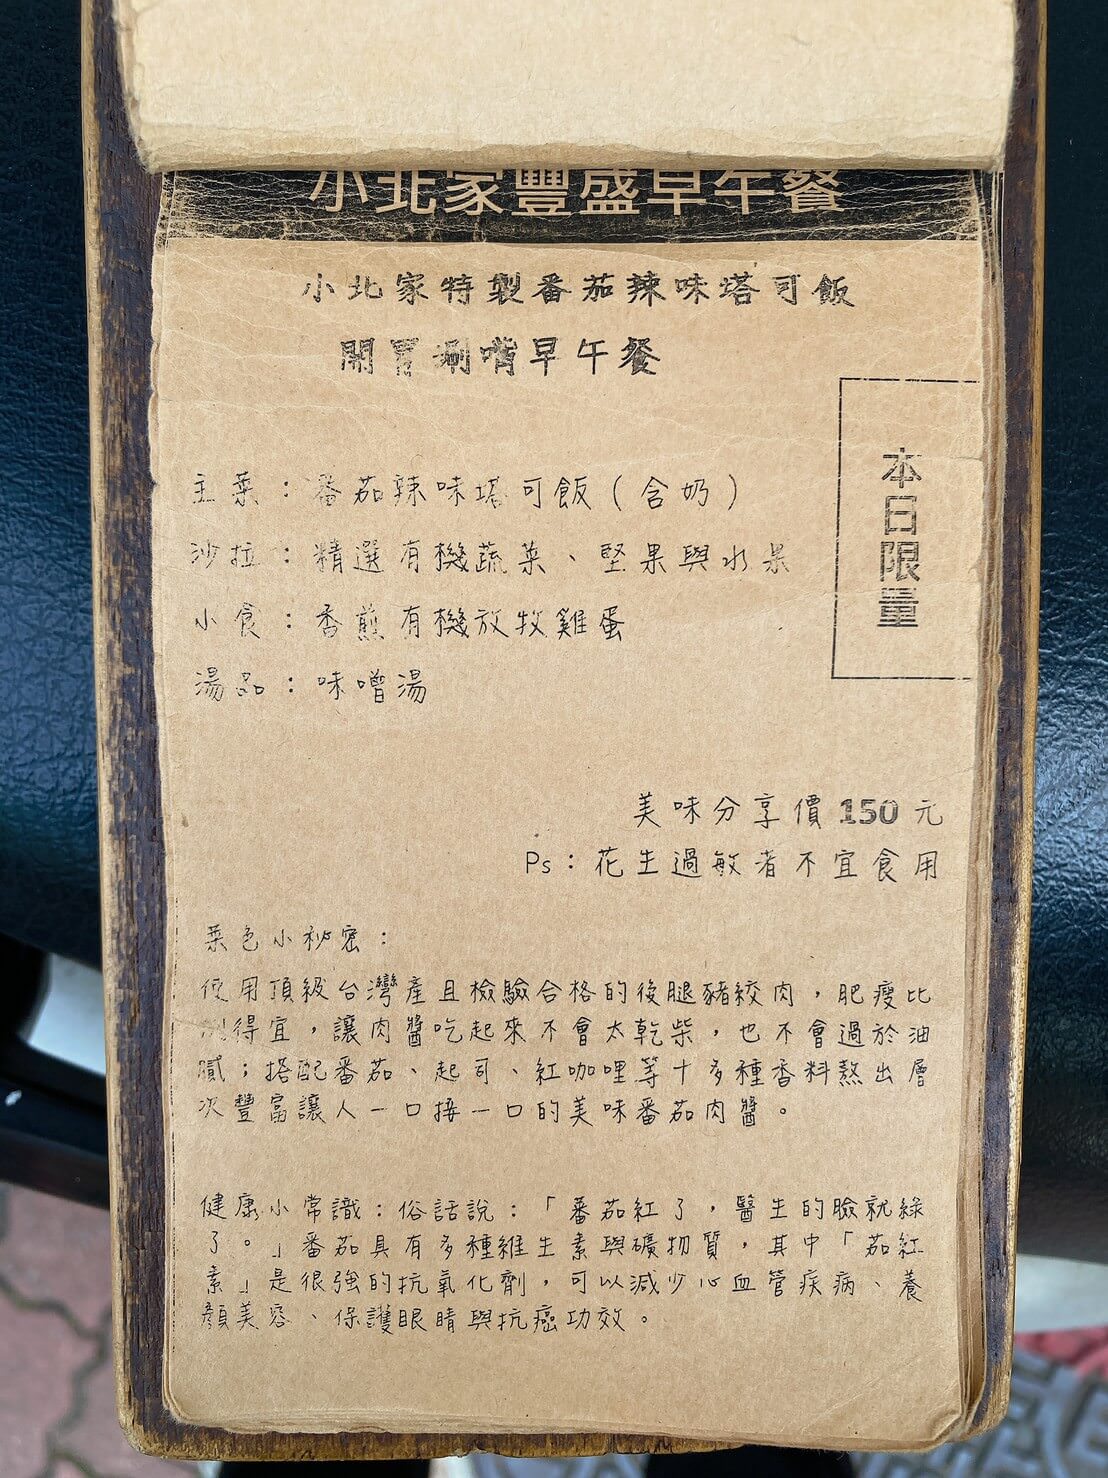 小北家豐盛早午餐
小北家特製番茄辣味塔可飯
開胃涮嘴早午餐
本日限量
主菜：番茄辣味塔可飯（含奶）
沙拉：精選有機蔬菜、堅果與水果
小食：香煎有機放牧雞蛋
湯品：味噌湯
美味分享價 150 元
Ps：花生過敏者不宜食用
菜色小秘密：
使用頂級台灣產且檢驗合格的後腿豬絞肉，肥瘦比
例得宜，讓肉醬吃起來不會太乾柴，也不會過於油
膩；搭配番茄、起司、紅咖哩等十多種香料熬出層
次豐富讓人一口接一口的美味番茄肉醬。
健康小常識：俗話說：「番茄紅了，醫生的臉就綠
了。」番茄具有多種維生素與礦物質，其中「茄紅
素」是很強的抗氧化劑，可以減少心血管疾病、養
顏美容、保護眼睛與抗癌功效。